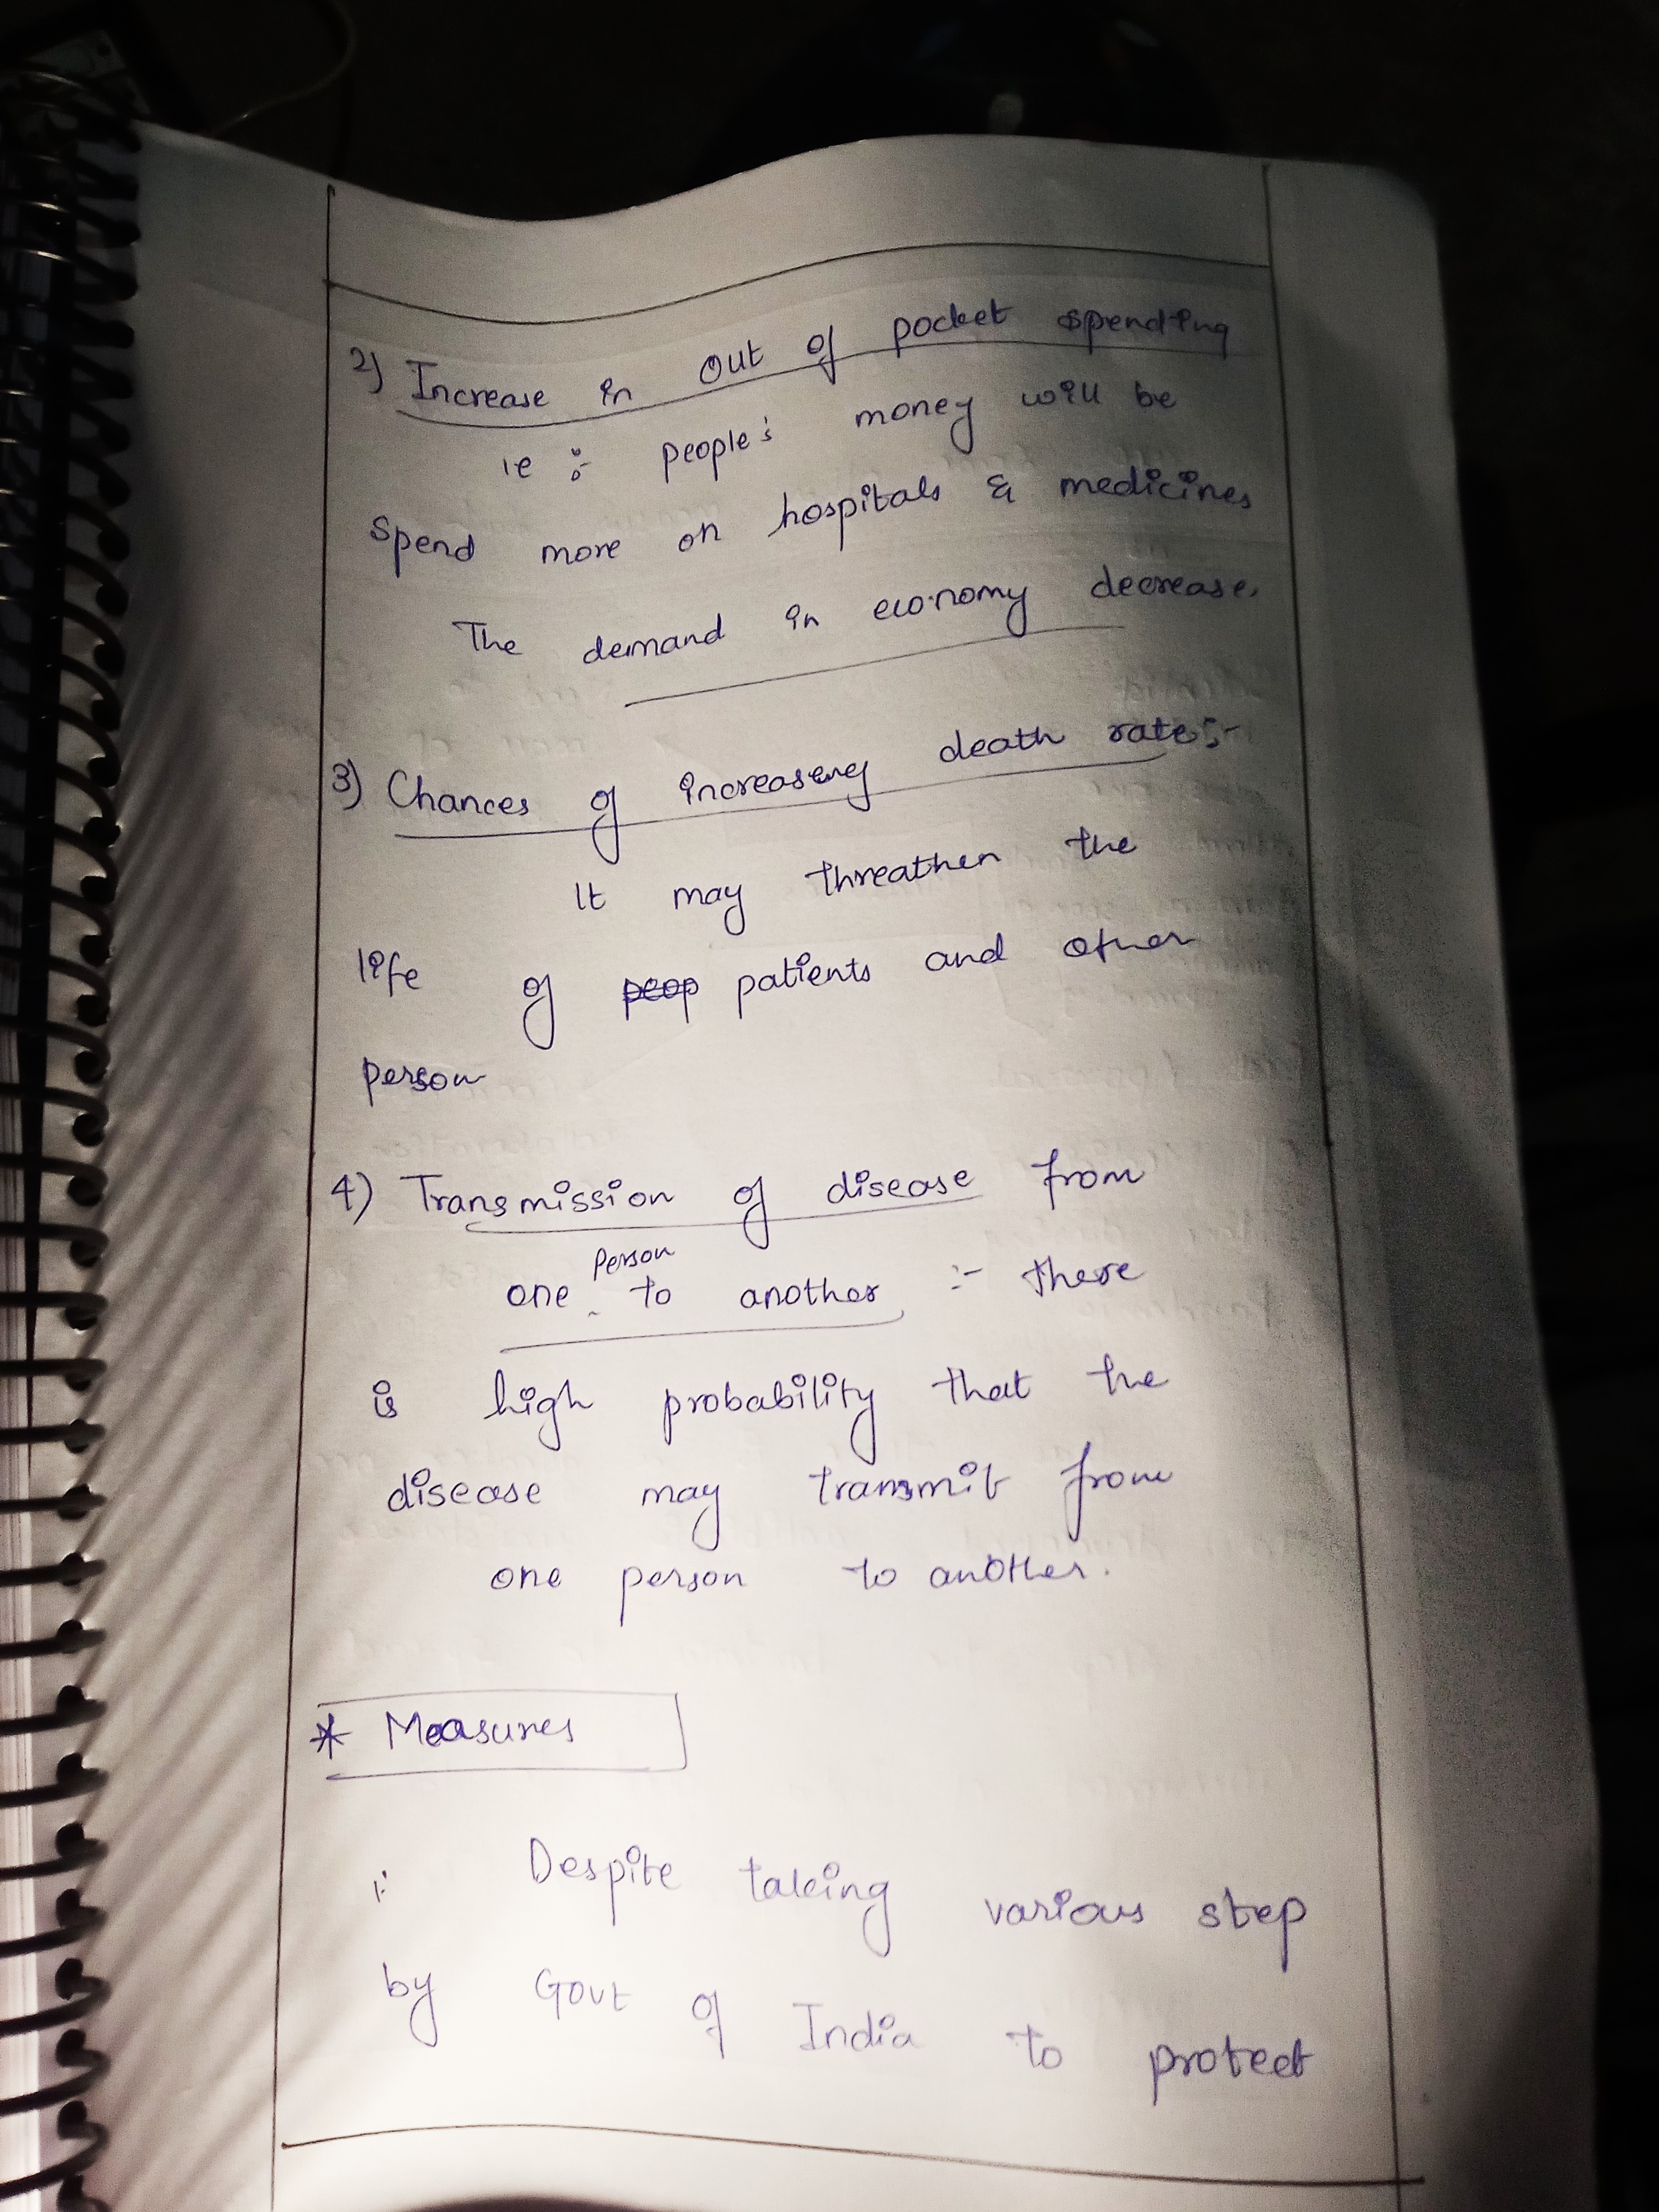 2) Increase in out of pocket spending
ie :- people's money will be
spend more on hospitals & medicines
The demand in economy decrease.
3) Chances of increaseng death rate :-
It may threathen the
life of peop patients and other
person
4) Transmission of disease from
one person to another :- there
is high probability that the
disease may transmit from
one person to another.
* Measures
1: Despite taking various step
by Govt of India to protect